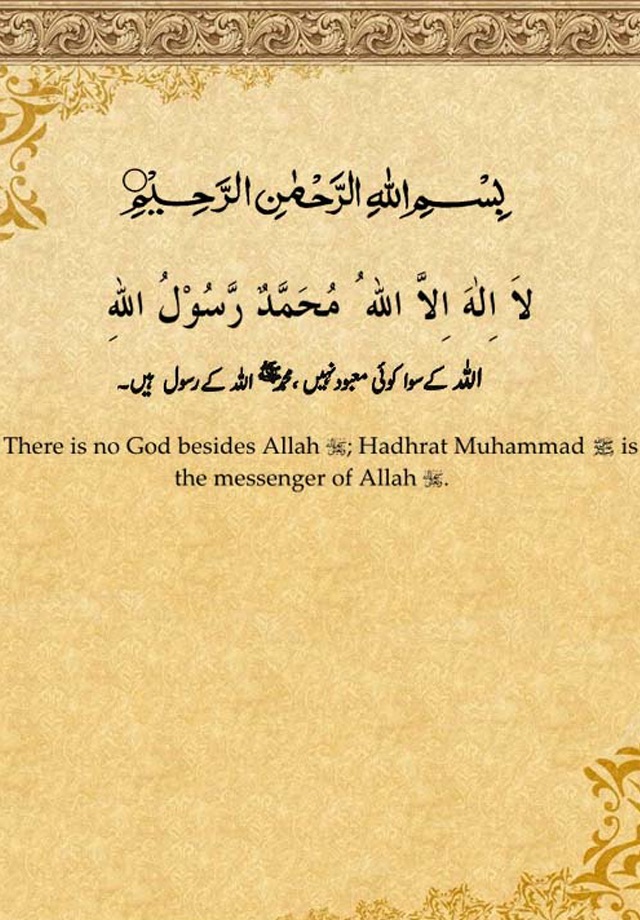 بِسْمِ اللهِ الرَّحْمٰنِ الرَّحِيْمِ
لاَ اِلٰهَ اِلاَّ اللهُ مُحَمَّدٌ رَّسُوْلُ اللهِ
اللہ کے سوا کوئی معبود نہیں، محمد ﷺ اللہ کے رسول ہیں۔
There is no God besides Allah ﷻ; Hadhrat Muhammad ﷺ is
the messenger of Allah ﷻ.